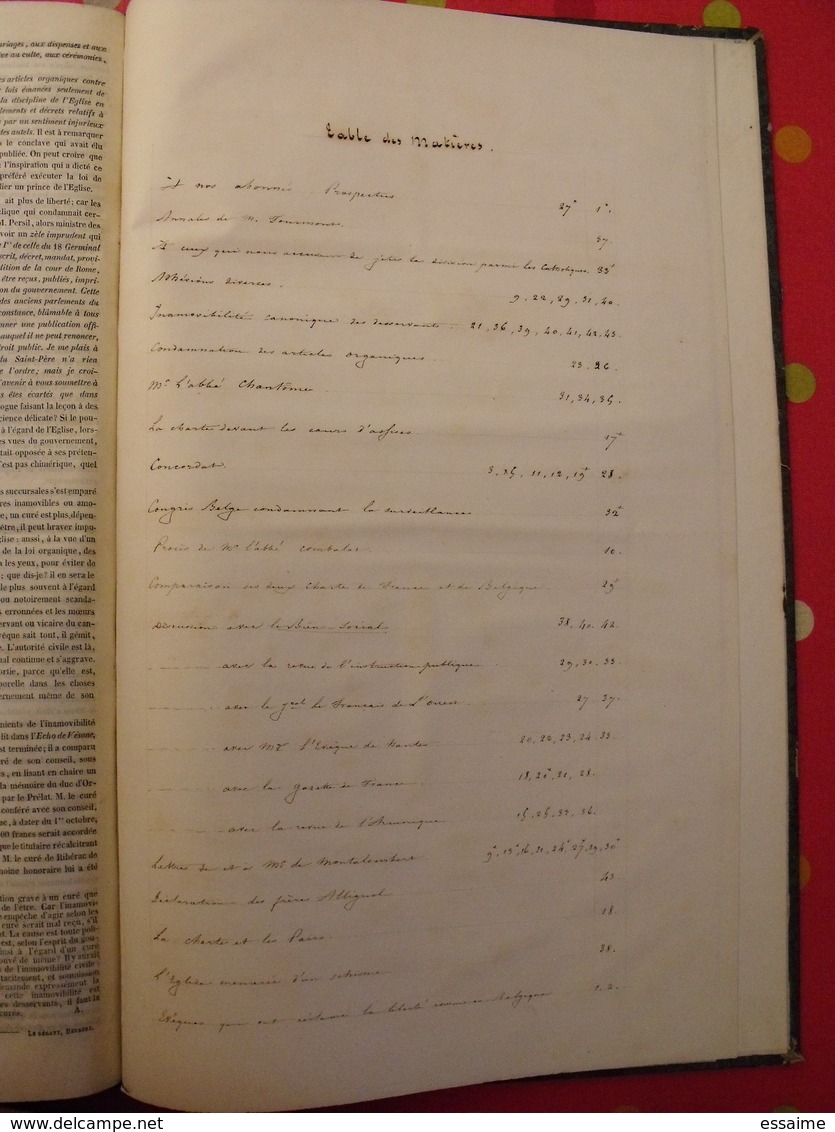 ariages, aux dispenses et aux
ive au culte, aux cérémonies,
es articles organiques contre
lois émanées seulement de
la discipline de l'Eglise en
lements et décrets relatifs à
par un sentiment injurieux
des autels. Il est à remarquer
s le conclave qui avait élu
publiée. On peut croire que
l'inspiration qui a dicté ce
préféré exécuter la loi de
lier un prince de l'Eglise.
ait plus de liberté; car les
lique qui condamnait cer-
d. Persil, alors ministre des
voir un zèle imprudent qui
e 1er de celle du 18 Germinal
scrit, décret, mandat, provi-
dition de la cour de Rome,
être reçus, publiés, impri-
on du gouvernement. Cette
des anciens parlements du
constance, blâmable à tous
nner une publication offi-
auquel il ne peut renoncer,
roit public. Je me plais à
du Saint-Père n'a rien
e l'ordre; mais je croi-
l'avenir à vous soumettre à
s êtes écartés que dans
logue faisant la leçon à des
cience délicate? Si le pou-
à l'égard de l'Eglise, lors-
es vues du gouvernement,
tait opposée à ses préten-
'est pas chimérique, quel
s succursales s'est emparé
res inamovibles ou amo-
e, un curé est plus dépen-
être, il peut braver impu-
glise: aussi, à la vue d'un
de la loi organique, des
a les yeux, pour éviter de
; que dis-je? il en sera le
le plus souvent à l'égard
ou notoirement scanda-
s erronées et les mœurs
servant ou vicaire du can-
vêque sait tout, il gémit,
e. L'autorité civile est là,
nal continue et s'aggrave.
ortie, parce qu'elle est,
porelle dans les choses
ernement même de son
nients de l'inamovibilité
lit dans l'Echo de Vésone,
st terminée; il a comparu
ré de son conseil, sous
s, en lisant en chaire un
la mémoire du duc d'Or-
par le Prélat. M. le curé
conféré avec son conseil,
ac, à dater du 1er octobre,
00 francs serait accordée
que le titulaire récalcitrant
M. le curé de Ribérac de
noine honoraire lui a été
tion grave à un curé que
de l'être. Car l'inamovi-
empêche d'agir selon les
curé serait mal reçu, s'il
t. La cause est toute poli-
est, selon l'esprit du gou-
insi à l'égard d'un curé
ouvé de même? Il y aurait
de l'inamovibilité civile
tacitement, et soumission
demande expressément la
cette inamovibilité est
es desservants, il faut le
cures. A.
LE GÉRANT,
Table des Matières.
A nos abonnés Prospectus 27+ 1+.
Annales de M. Fourmont. 37.
A ceux qui nous accusent de jeter la division parmi les Catholiques. 33+
Adhésions diverses. 9, 22, 29, 31, 40.
Inamovibilité canonique des desservants 21, 36, 39, 40, 41, 42, 43.
Condamnation des articles organiques 23. 26
Mr l'abbé Chantôme 31, 34, 35.
La charte devant les cours d'assises 17+
Concordat. 11, 12, 28.
Congrès Belge condamnant la surveillance 32+
Procès de Mr l'abbé Combalot. 10.
Comparaison des deux Charte de France et de Belgique.
Discussion avec le Bien-Social 38. 40. 42.
avec la revue de l'instruction publique 29, 30. 33.
avec le gal le Français de l'Ouest 27. 37.
avec Mgr l'Evêque de Nantes 20, 22, 23, 24. 33.
avec la gazette de France 18, 20+, 21, 28.
avec la revue de l'Armorique 15, 25, 33, 36.
Lettres de et à Mr de Montalembert
Déclaration des frères Allignol 43
La charte et les Pairs. 18.
L'Eglise menacée d'un schisme 38.
Evêques qui ont réclamé la liberté comme en Belgique 1. 2.
essaime